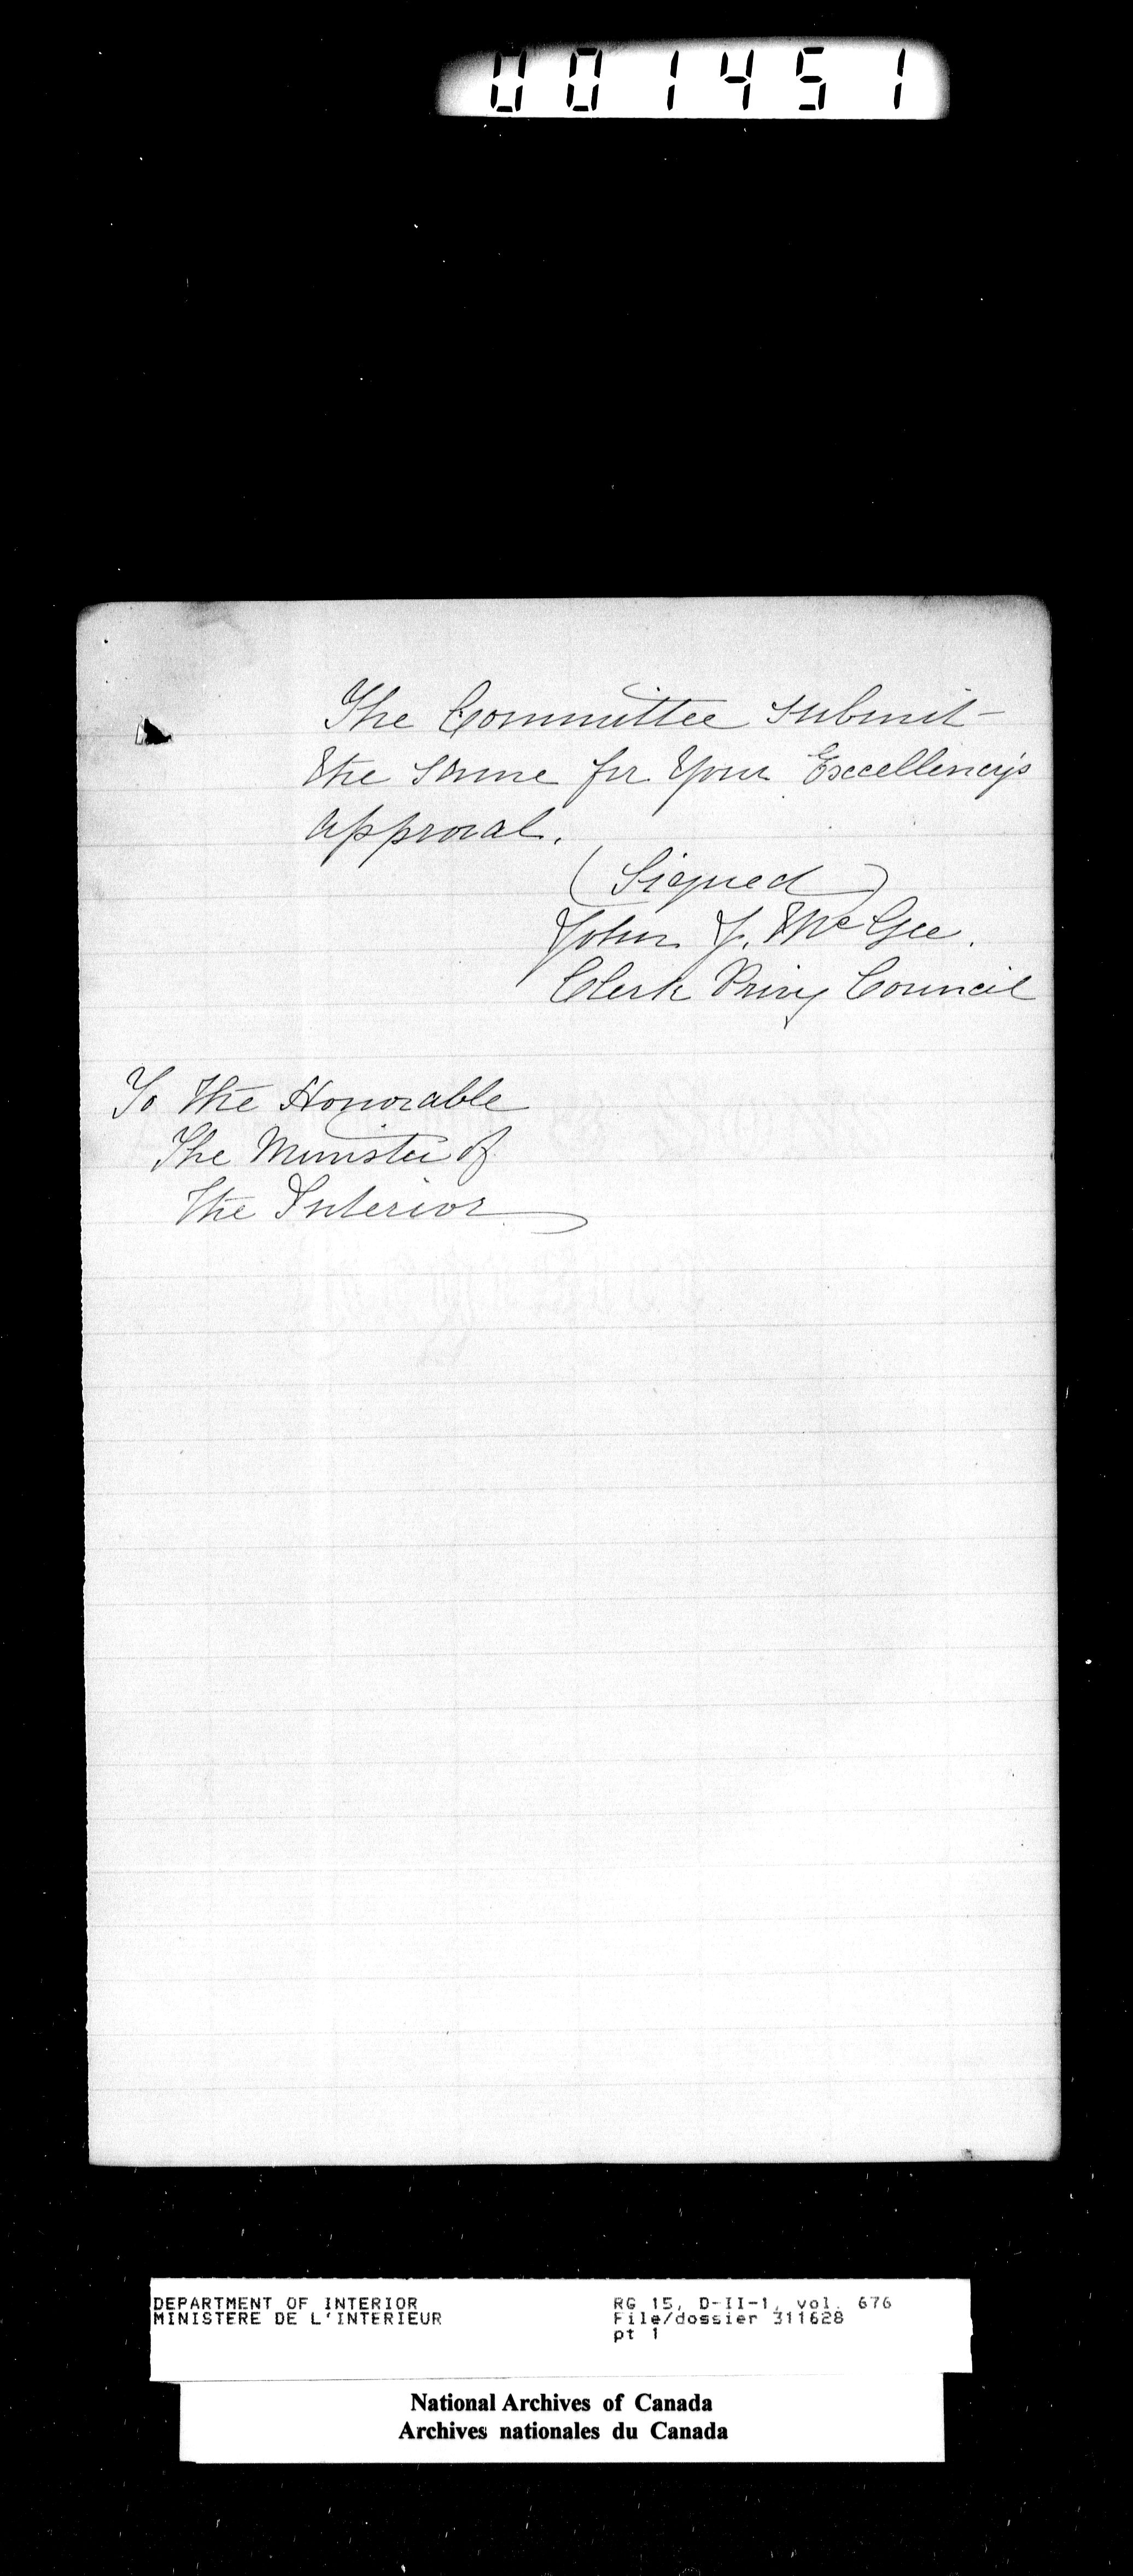 001451
The Committee submit
the same for Your Excellency's
approval.
(Signed)
John J. McGee.
Clerk Privy Council
To the Honorable
The Minister of
the Interior
DEPARTMENT OF INTERIOR
MINISTERE DE L'INTERIEUR
RG 15, D-II-1, vol. 676
File/dossier 311628
pt 1
National Archives of Canada
Archives nationales du Canada